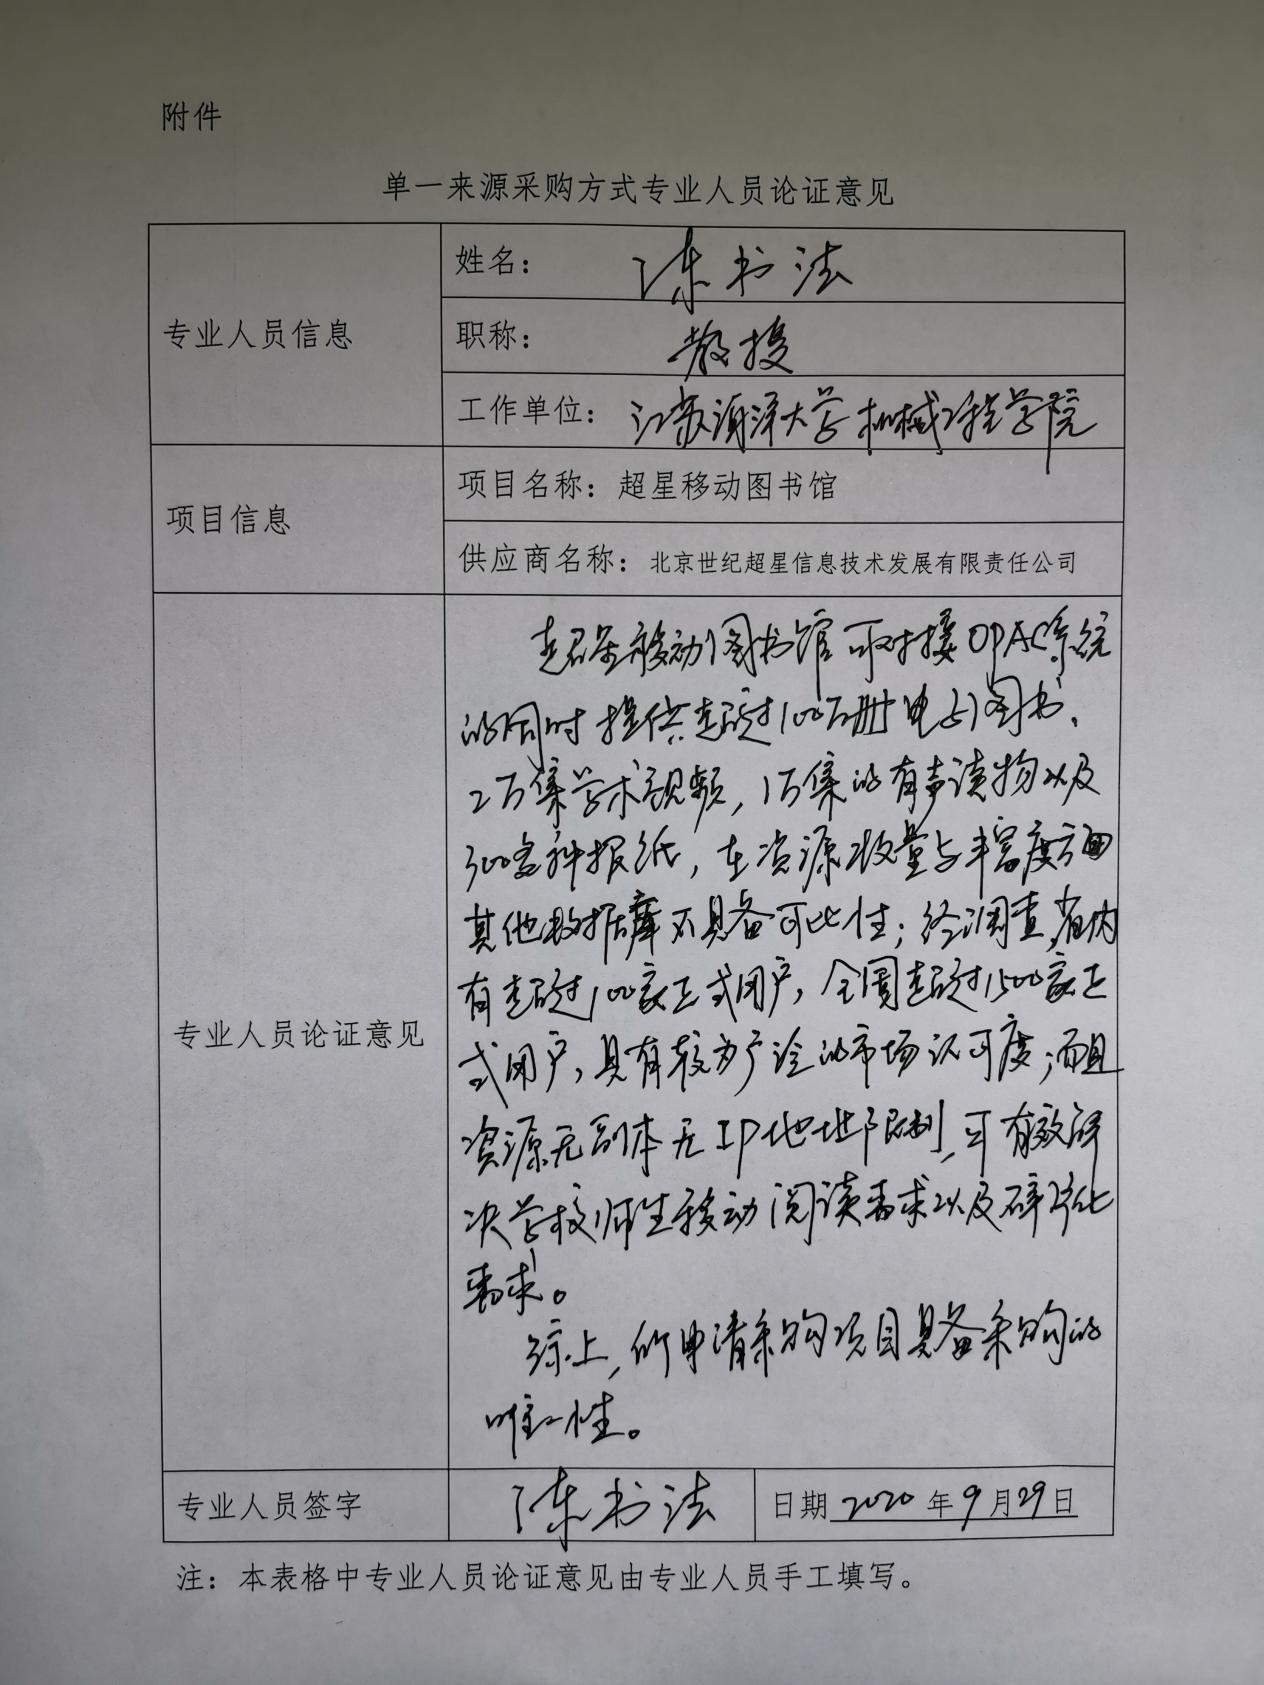 附件
单一来源采购方式专业人员论证意见
专业人员信息
姓名：陈书法
职称：教授
工作单位：江苏海洋大学机械工程学院
项目信息
项目名称：超星移动图书馆
供应商名称：北京世纪超星信息技术发展有限责任公司
专业人员论证意见
超星移动图书馆可对接OPAC系统
的同时提供超过100万册电子图书、
2万集学术视频，1万集的有声读物以及
300多种报纸，在资源数量与丰富度方面
其他数据库不具备可比性；经调查，省内
有超过100家正式用户，全国超过1500家正
式用户，具有较为广泛的市场认可度；而且
资源无副本无IP地址限制，可有效解
决学校师生移动阅读需求以及碎片化
需求。
综上，所申请采购项目具备采购的
唯一性。
专业人员签字
陈书法
日期 2020 年 9 月 29 日
注：本表格中专业人员论证意见由专业人员手工填写。